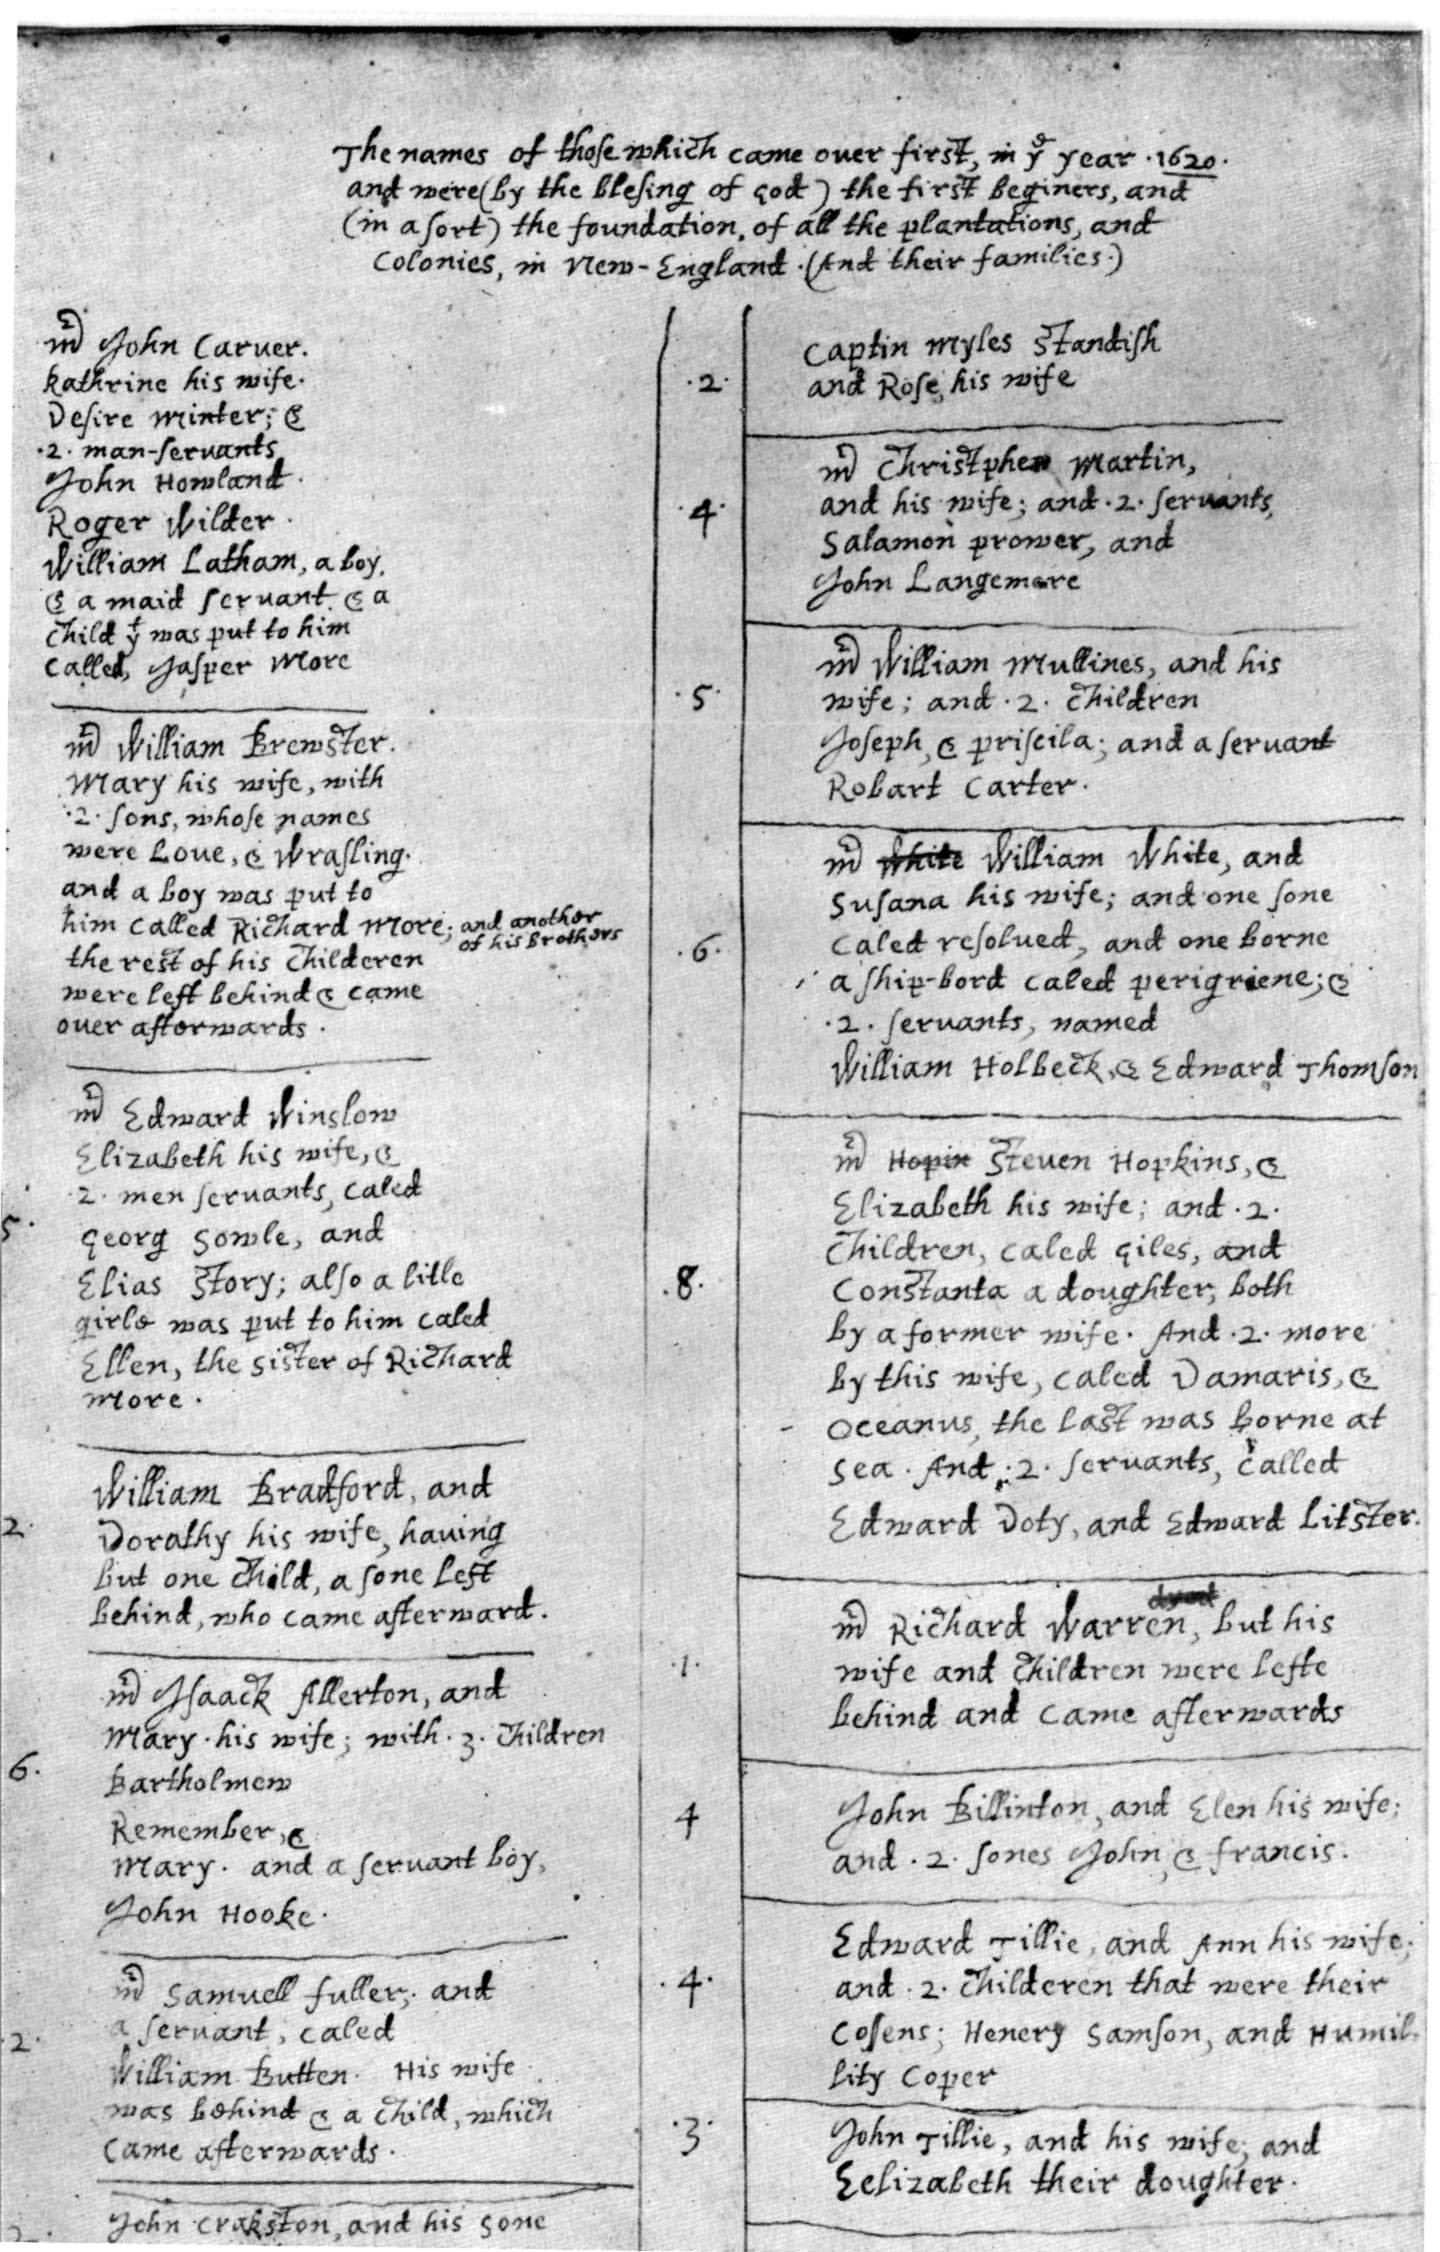 The names of those which came over first, in yͤ year ·1620·
and were (by the blesing of god) the first beginers, and
(in a sort) the foundation, of all the plantations, and
Colonies, in New-England. (And their families.)
mʳ John Carver.
kathrine his wife.
Desire Minter; &
·2· man-servants
John Howland.
Roger Wilder.
William Latham, a boy,
& a maid servant. & a
child yᵗ was put to him
called, Jasper More
mʳ William Brewster.
Mary his wife, with
·2· sons, whose names
were Love, & Wrasling.
and a boy was put to
him called Richard More; and another
of his brothers
the rest of his childeren
were left behind & came
over afterwards.
5·
mʳ Edward Winslow
Elizabeth his wife, &
·2· men servants, caled
Georg Sowle, and
Elias Story; also a litle
girle was put to him caled
Ellen, the sister of Richard
More.
2·
William Bradford, and
Dorathy his wife, having
but one child, a sone left
behind, who came afterward.
6·
mʳ Isaack Allerton, and
Mary his wife; with ·3· children
Bartholmew
Remember, &
Mary. and a servant boy,
John Hooke.
·2·
mʳ Samuell fuller; and
a servant, caled
William Butten. His wife
was behind & a child, which
came afterwards.
2·
John Crakston, and his sone
·2·
Captin Myles Standish
and Rose, his wife
·4·
mʳ Christpher Martin,
and his wife; and ·2· servants,
Salamon prower, and
John Langemore
·5·
mʳ William Mullines, and his
wife; and ·2· children
Joseph, & priscila; and a servant
Robart Carter.
·6·
mʳ White William White, and
Susana his wife; and one sone
caled resolved, and one borne
a ship-bord caled perigriene; &
·2· servants, named
William Holbeck, & Edward Thomson
·8·
mʳ Hopin Steven Hopkins, &
Elizabeth his wife; and ·2·
children, caled Giles, and
Constanta a doughter, both
by a former wife. And ·2· more
by this wife, caled Damaris, &
Oceanus, the last was borne at
sea. And ·2· servants, called
Edward Doty, and Edward Litster.
·1·
dyed
mʳ Richard Warren, but his
wife and children were lefte
behind and came afterwards
4
John Billinton, and Elen his wife;
and ·2· sones John, & francis.
·4·
Edward Tillie, and Ann his wife;
and ·2· childeren that were their
cosens; Henery Samson, and Humil-
lity Coper
·3·
John Tillie, and his wife; and
Eelizabeth their doughter.